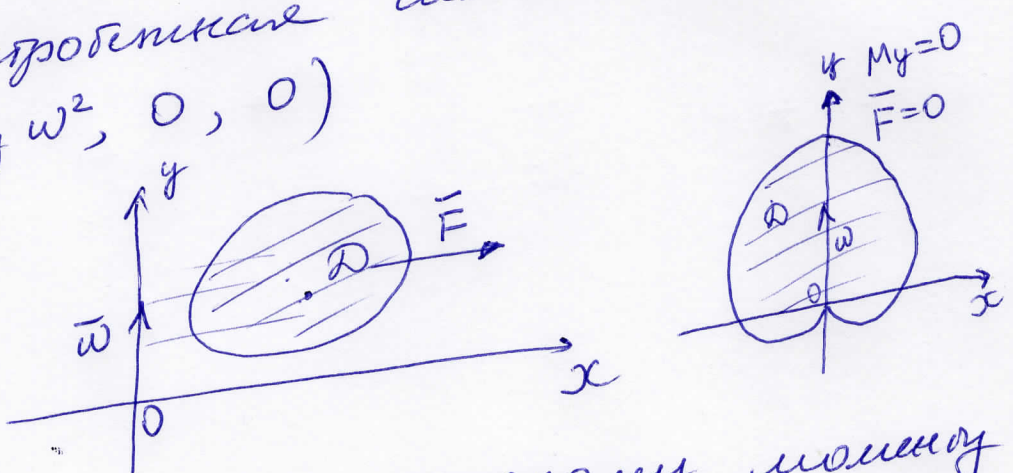 тробежная
ω², 0, 0)
y
F̅
D
ω̅
x
0
y My=0
F̅=0
D
ω
0
x
моменту